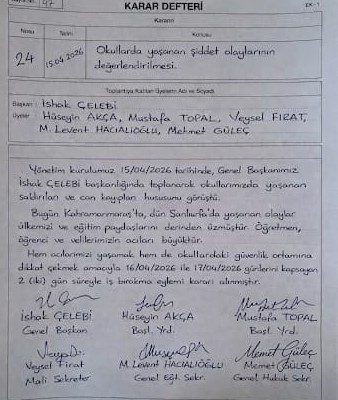 97
KARAR DEFTERİ
EK - 1
Kararın
Nosu
Tarihi
Konusu
24
15.04.2026
Okullarda yaşanan şiddet olaylarının
değerlendirilmesi.
Toplantıya Katılan Üyelerin Adı ve Soyadı
Başkan : İshak ÇELEBİ
Üyeler : Hüseyin AKÇA, Mustafa TOPAL, Veysel FIRAT,
M. Levent HACIALİOĞLU, Mehmet GÜLEÇ
Yönetim kurulumuz 15/04/2026 tarihinde, Genel Başkanımız
İshak ÇELEBİ başkanlığında toplanarak okullarımızda yaşanan
saldırıları ve can kayıpları hususunu görüştü.
Bugün Kahramanmaraş'ta, dün Şanlıurfa'da yaşanan olaylar
ülkemizi ve eğitim paydaşlarını derinden üzmüştür. Öğretmen,
öğrenci ve velilerimizin acıları büyüktür.
Hem acılarımızı yaşamak hem de okullardaki güvenlik ortamına
dikkat çekmek amacıyla 16/04/2026 ile 17/04/2026 günlerini kapsayan
2 (iki) gün süreyle iş bırakma eylemi kararı alınmıştır.
İshak ÇELEBİ
Hüseyin AKÇA
Mustafa TOPAL
Genel Başkan
Başk. Yrd.
Başk. Yrd.
Memet Güleç
Veysel Fırat
M. Levent HACIALİOĞLU
Memet GÜLEÇ
Mali Sekreter
Genel Eğt. Sekr.
Genel Hukuk Sekr.